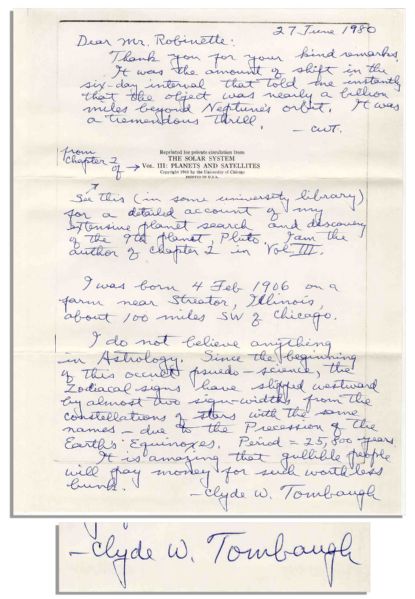 27 June 1980
Dear Mr. Robinette:
Thank you for your kind remarks.
It was the amount of shift in the
six-day interval that told me instantly
that the object was nearly a billion
miles beyond Neptune's orbit. It was
a tremendous thrill. — CWT.
from
Chapter 2
of →
Reprinted for private circulation from
THE SOLAR SYSTEM
Vol. III: PLANETS AND SATELLITES
Copyright 1961 by the University of Chicago
PRINTED IN U.S.A.
See this (in some university library)
for a detailed account of my
extensive planet search and discovery
of the 9th planet, Pluto. I am the
author of Chapter 2 in Vol III.
I was born 4 Feb 1906 on a
farm near Streator, Illinois,
about 100 miles SW of Chicago.
I do not believe anything
in Astrology. Since the beginning
of this occult psuedo-science, the
Zodiacal signs have slipped westward
by almost two sign-widths from the
constellations of stars with the same
names — due to the Precession of the
Earth's Equinoxes. Period = 25,800 years
It is amazing that gullible people
will pay money for such worthless
bunk.
— Clyde W. Tombaugh
— Clyde W. Tombaugh